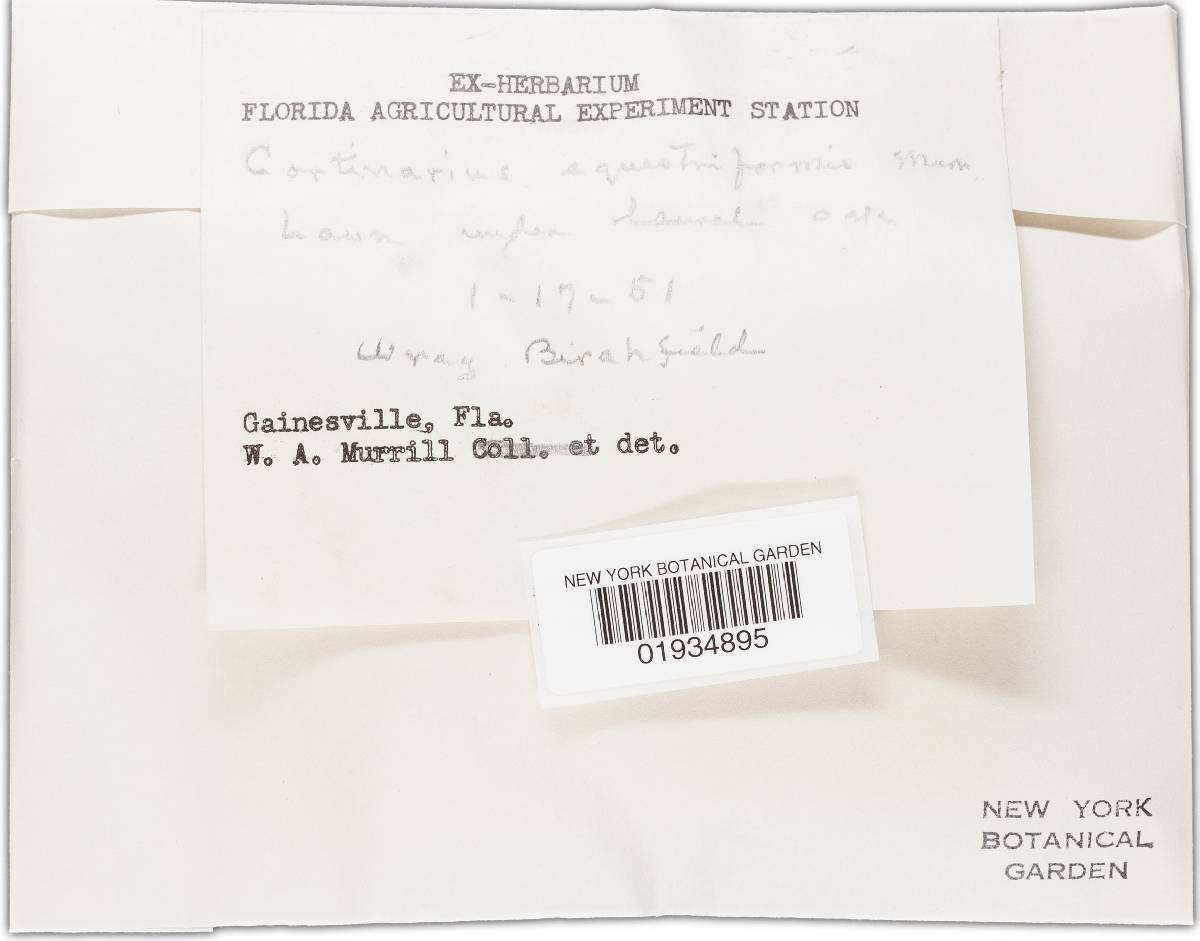 EX-HERBARIUM
FLORIDA AGRICULTURAL EXPERIMENT STATION
Cortinarius equestriformis Murr.
Lawn under laurel oak
1-17-51
Wray Birchfield
Gainesville, Fla.
W. A. Murrill Coll. et det.
NEW YORK BOTANICAL GARDEN
01934895
NEW YORK
BOTANICAL
GARDEN